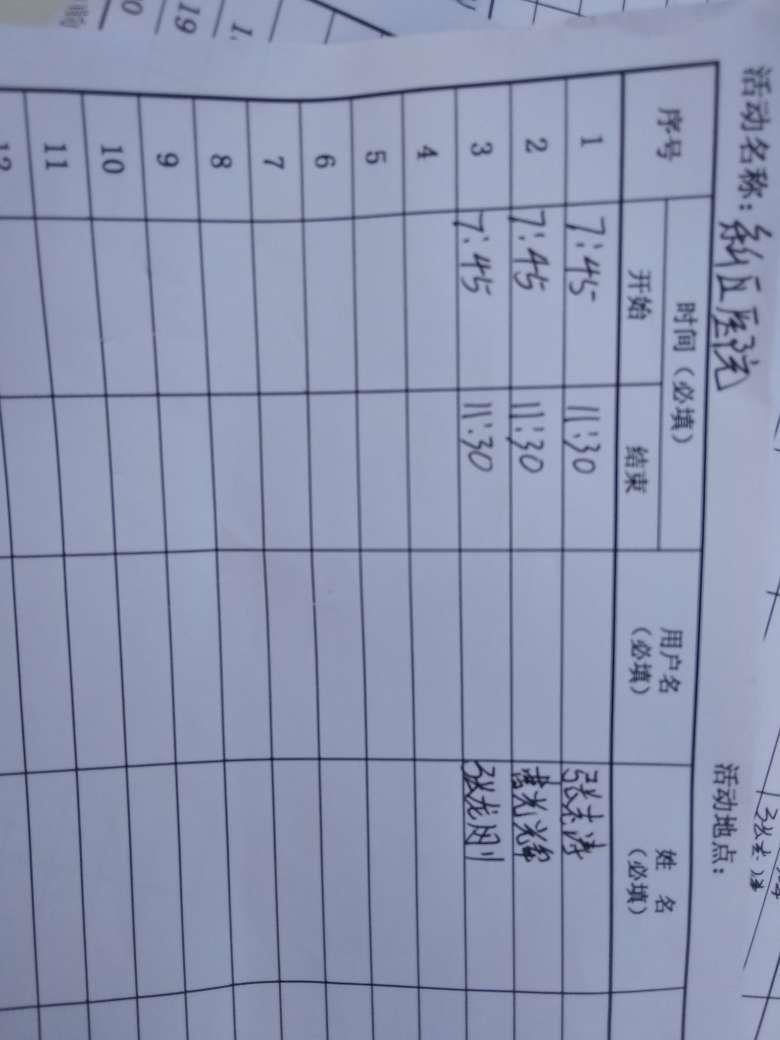 活动名称：新区医院 活动地点：
序号 时间（必填） 用户名（必填） 姓名（必填）
开始 结束
1 7:45 11:30 张志涛
2 7:45 11:30 曹光辉
3 7:45 11:30 张龙刚
4
5
6
7
8
9
10
11
12
19